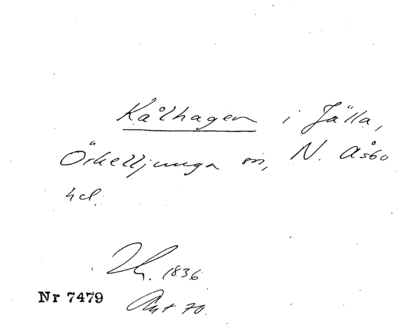 Kålhagen i Jälla,
Örkelljunga sn, N. Åsbo
hd.
1836
Nr 7479
Ant 70.